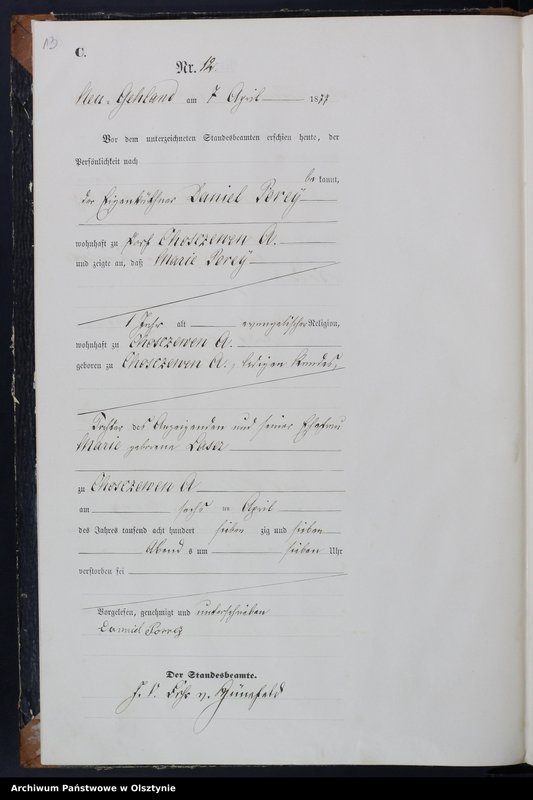 13
C.
Nr. 12.
Neu-Gehland am 7 April 1877
Vor dem unterzeichneten Standesbeamten erschien heute, der
Persönlichkeit nach
be kannt,
der Eigenkäthner Daniel Porey
wohnhaft zu Dorf Choszewen A.
und zeigte an, daß Marie Porey
1 Jahr alt evangelischer Religion,
wohnhaft zu Choszewen A.
geboren zu Choszewen A., ledigen Standes,
Tochter des Anzeigenden und seiner Ehefrau
Marie geborene
zu Choszewen A
am sechs ten April
des Jahres tausend acht hundert sieben zig und sieben
Abend s um sieben Uhr
verstorben sei
Vorgelesen, genehmigt und unterschrieben
Daniel Porrez
Der Standesbeamte.
v.
Archiwum Państwowe w Olsztynie